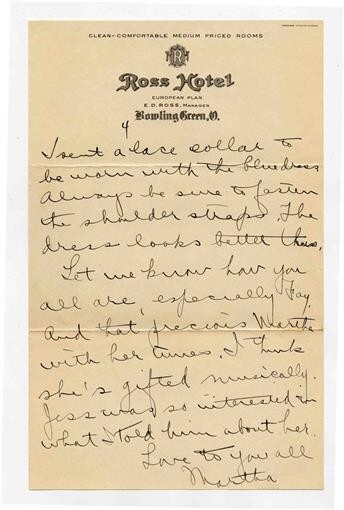 CLEAN-COMFORTABLE MEDIUM PRICED ROOMS
R
Ross Hotel
EUROPEAN PLAN
E. D. ROSS, MANAGER
Bowling Green, O.
4
I sent a lace collar to
be worn with the blue dress
Always be sure to fasten
the shoulder straps. The
dress looks better thus.
Let me know how you
all are, especially Fay,
And that precious Martha
with her tunes. I think
she's gifted musically.
Jess was so interested in
what I told him about her.
Love to you all
Martha